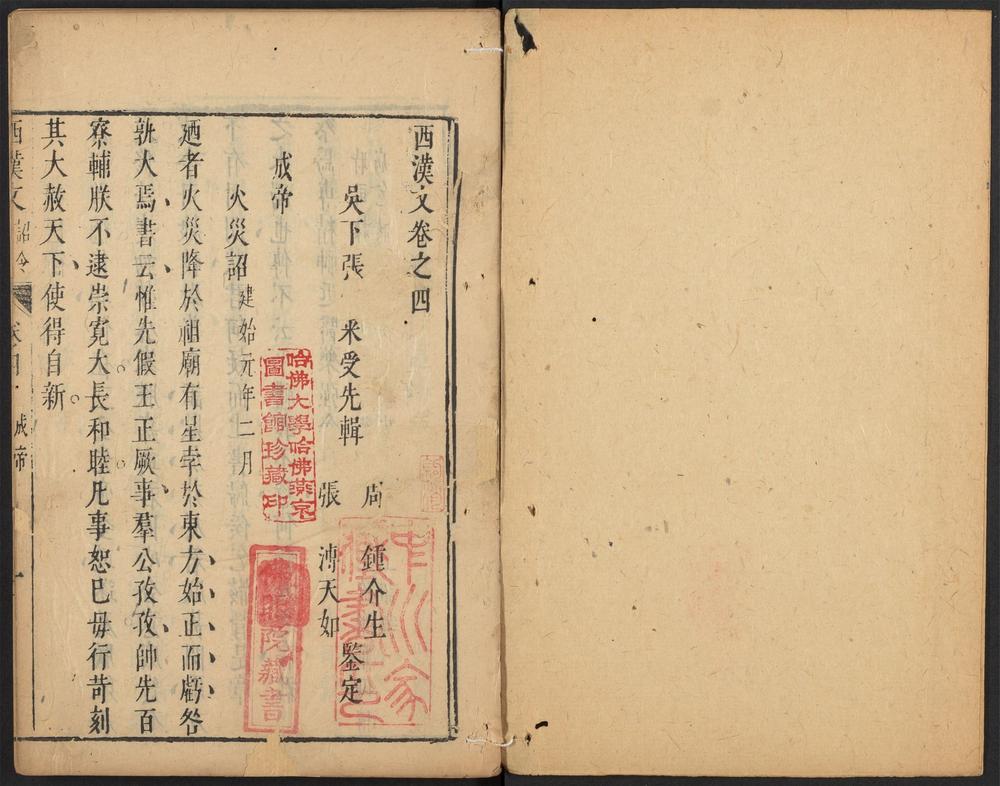 西漢文卷之四
周 鍾介生
吳下張 采受先輯 鑒定
張 溥天如
成帝
火災詔建始元年二月
廼者火災降於祖廟有星孛於東方始正而虧咎
孰大焉書云惟先假王正厥事羣公孜孜帥先百
寮輔朕不逮崇寬大長和睦凡事恕已毋行苛刻
其大赦天下使得自新
西漢文 詔令 卷四 成帝 一
哈佛大學哈佛燕京
圖書館珍藏印
院藏書